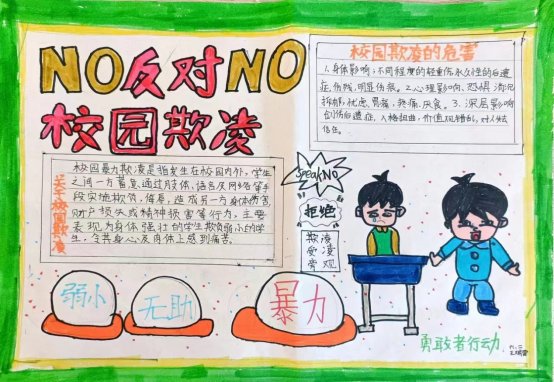 NO反对NO
校园欺凌
校园欺凌的危害
1.身体影响:不同程度的轻重伤,永久性的后遗
症,伤残,明显伤痕。2.心理影响、恐惧 消沉
抑郁,忧虑、胃痛,疼痛,厌食。3.深层影响
创伤后遗症,人格扭曲,价值观错乱,对人缺
信任。
关于校园欺凌
校园暴力欺凌是指发生在校园内外,学生
之间一方蓄意通过肢体,语言及网络等手
段实施欺负,侮辱,造成另一方身体伤害
财产损失或精神损害等行为,主要
表现为身体强壮的学生欺负弱小的学
生,令其身心及肉体上感到痛苦
Speak NO
拒绝
欺凌
受凌
旁观
弱小
无助
暴力
勇敢者行动